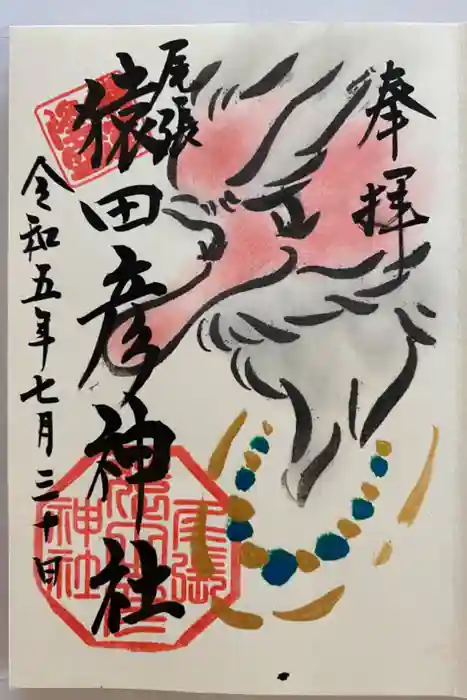 奉拝
尾張
猿田彦神社
令和五年七月三十日
尾張
猿田彦
神社